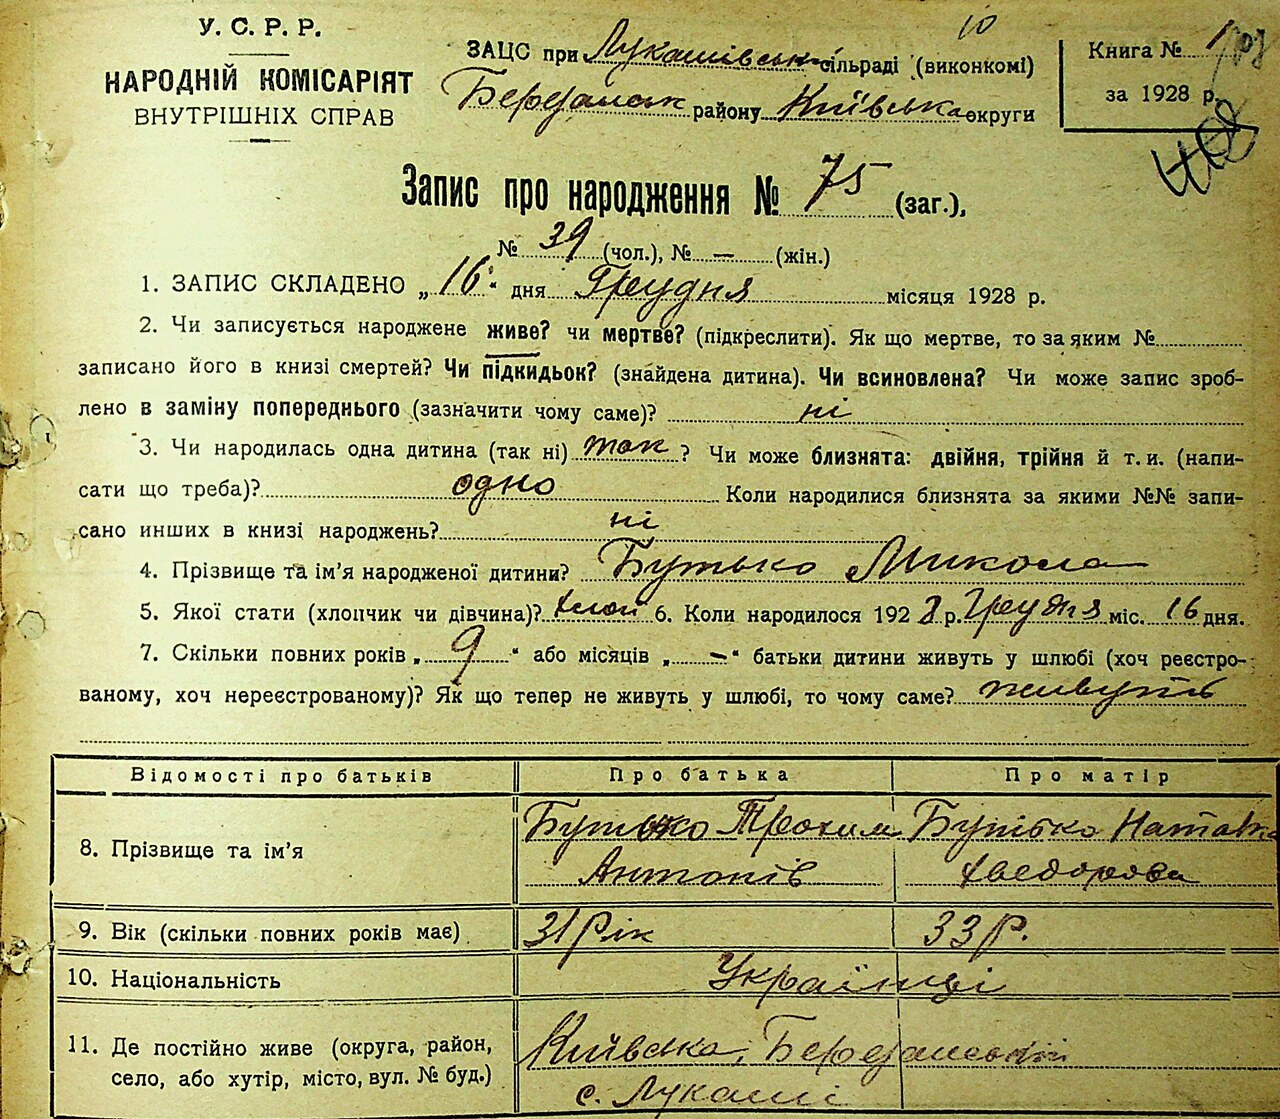 У. С. Р. Р.
НАРОДНІЙ КОМІСАРІЯТ
ВНУТРІШНІХ СПРАВ
10
ЗАЦС при Лукашівській сільраді (виконкомі)
Березанськ району Київська округи
Книга № 1
за 1928 р.
408
Запис про народження № 75 (заг.),
№ 39 (чол.), № — (жін.)
1. ЗАПИС СКЛАДЕНО „ 16 “ дня Грудня місяця 1928 р.
2. Чи записується народжене живе? чи мертве? (підкреслити). Як що мертве, то за яким №
записано його в книзі смертей? Чи підкидьок? (знайдена дитина). Чи всиновлена? Чи може запис зроб-
лено в заміну попереднього (зазначити чому саме)? ні
3. Чи народилась одна дитина (так ні) так ? Чи може близнята: двійня, трійня й т. и. (напи-
сати що треба)? одно Коли народилися близнята за якими №№ запи-
сано инших в книзі народжень? ні
4. Прізвище та ім'я народженої дитини? Бутько Микола
5. Якої стати (хлопчик чи дівчина)? хлоп 6. Коли народилося 1928 р. Грудня міс. 16 дня.
7. Скільки повних років „ 9 “ або місяців „ — “ батьки дитини живуть у шлюбі (хоч реєстро-
ваному, хоч нереєстрованому)? Як що тепер не живуть у шлюбі, то чому саме? живуть
Відомості про батьків Про батька Про матір
8. Прізвище та ім'я Бутько Трохим Бутько Наталка
Антонів Хведорова
9. Вік (скільки повних років має) 31 рік 33 р.
10. Національність Українці
11. Де постійно живе (округа, район, Київська, Березанський
село, або хутір, місто, вул. № буд.) с. Лукаші